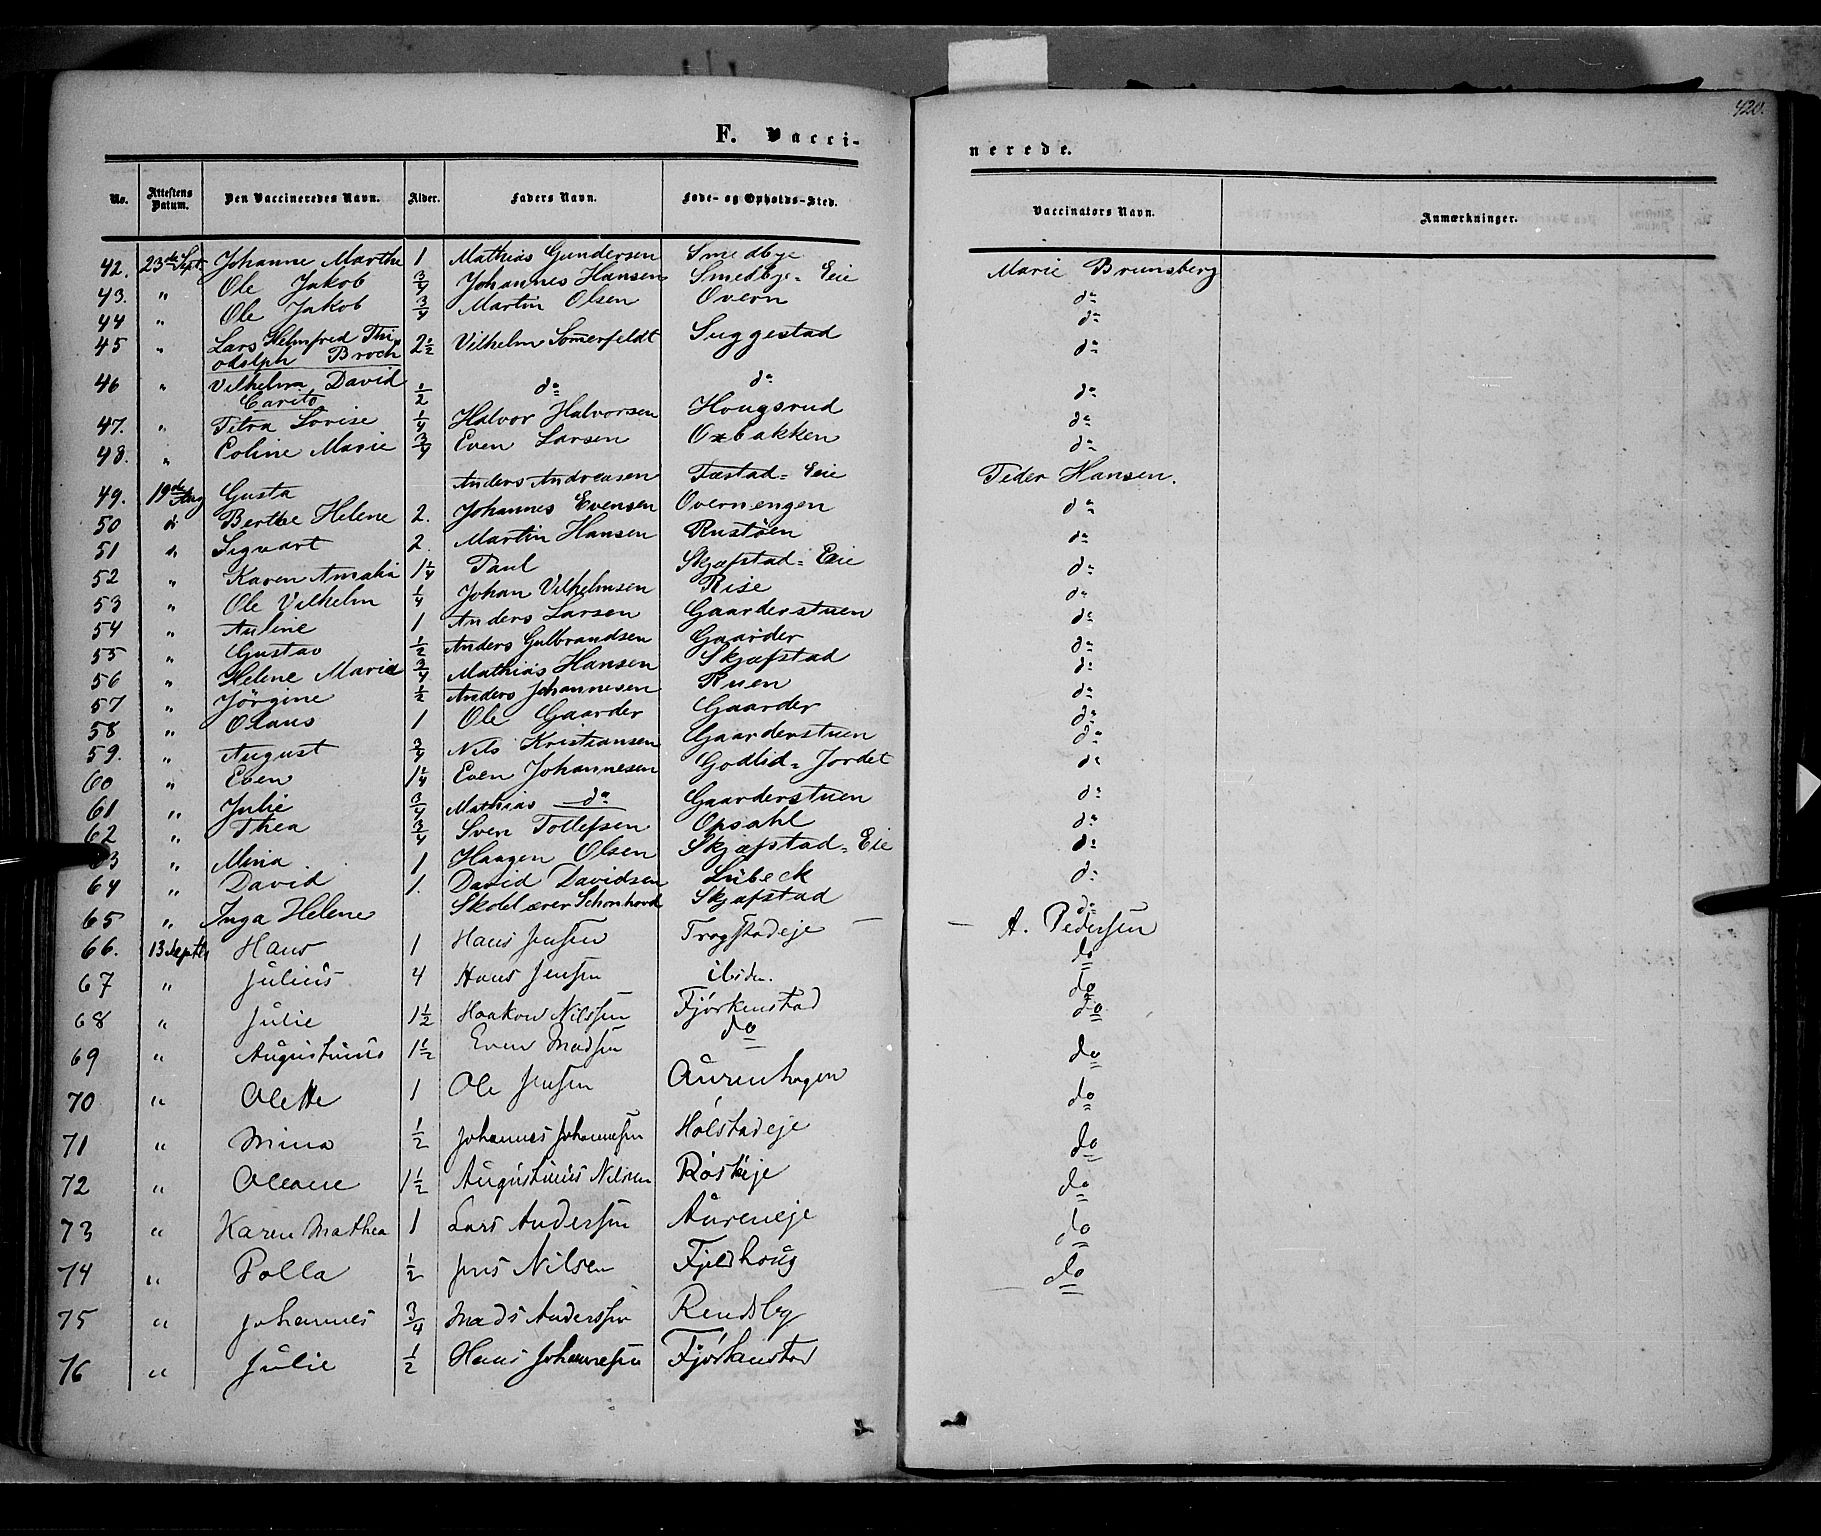 420.
F. Vacci-
nerede.
No. Attestens Datum. Den Vaccineredes Navn. Alder. Faders Navn. Føde- og Opholds-Sted. Vaccinators Navn. Anmærkninger.
42. 23de Sept. Johanne Marthe 1 Mathias Gundersen Smedbye Marie Brunsberg
43. " Ole Jakob 3/4 Johannes Hansen Smedbye-Eie do
44 " Ole Jakob 3/4 Martin Olsen Overn do
45 " Lars Helmfred Thi-
odolph Broch 2 1/2 Vilhelm Somerfeldt Suggestad do
46 " Vilhelm David
Carito 1/2 do do do
47. " Petra Lovise 1/4 Halvor Halvorsen Hougsrud do
48. " Eoline Marie 3/4 Even Larsen Oxbakken do
49. 19de Aug Gusta Anders Andreasen Fæstad-Eie Peder Hansen.
50 do Berthe Helene 2. Johannes Evensen Overnengen do
51 " Sigvart 2. Martin Hansen Rustøen do
52 " Karen Amalia 1 1/4 Paul Skjæfstad-Eie do
53 " Ole Vilhelm 1/4 Johan Vilhelmsen Rise do
54 " Auline 1 Anders Larsen Gaarderstuen do
55 " Gustav 1/2 Anders Gulbrandsen Gaarder do
56 " Helene Maria 3/4 Mathias Hansen Skjæfstad do
57 " Jörgine 1/2 Anders Johannesen Ruen do
58 " Olaus 1 Ole Gaarder Gaarder do
59. " August 3/4 Nils Kristiansen Gaarderstuen do
60 " Even 1 1/4 Even Johannesen Godlid-Jordet do
61 " Julie 3/4 Mathias do Gaarderstuen do
62 " Thea 3/4 Sven Tollefsen Opsahl do
63 " Mina. 1 Haagen Olsen Skjæfstad-Eie do
64 " David 1. David Davidsen Lübeck do
65 " Inga Helene Skolelærer Schonhovd Skjæfstad do
66. 13 Septbr Hans 1 Hans Jensen Trogstadeje A. Pedersen
67 " Julius 4 Hans Jensen ibidem. do
68 " Julie 1 1/2 Haakon Nilssen Fjørkenstad do
69 " Augustinus 1 1/2 Even Madsen do do
70 " Olette 1 Ole Jensen Aurenhagen do
71 " Mina 1/2 Johannes Johannesen Holstadeje do
72 " Oleane 1 1/2 Augustinus Nilsen Røsteje do
73 " Karen Mathea 1 Lars Anderssen Aureneje do
74 " Polla 1/2 Jens Nilsen Fjeldhoug do
75 " Johannes 3/4 Mads Anderssen Rendsby do
76 " Julie 1/2 Hans Johannesen Fjørkenstad